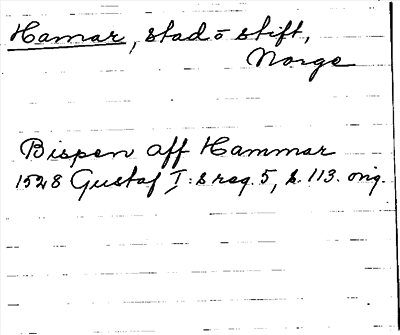 Hamar, stad o stift,
Norge
Bispen aff Hammar
1528 Gustaf I:s reg. 5, s. 113. orig.